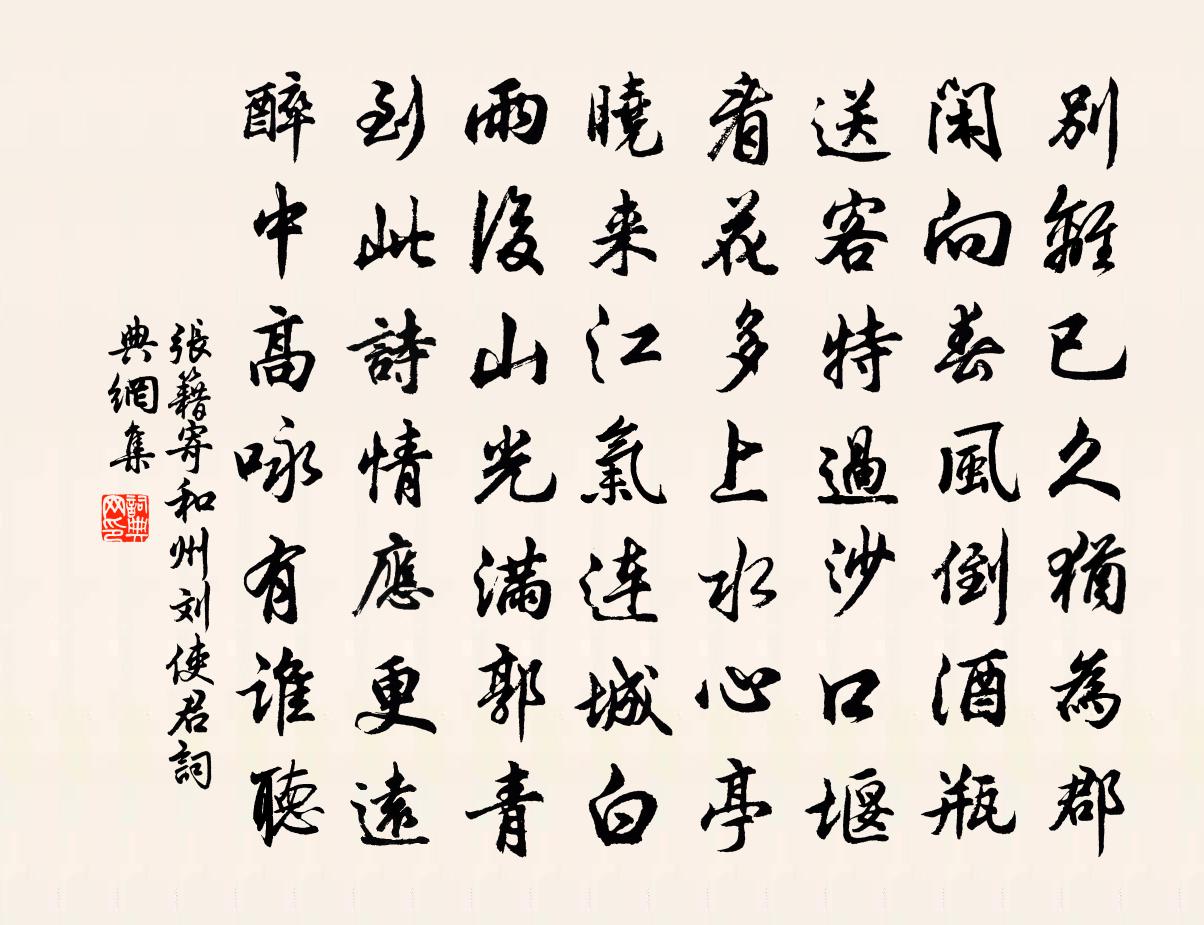 別離已久猶為郡
閑向春風倒酒瓶
送客特過沙口堰
看花多上水心亭
曉来江氣連城白
雨後山光滿郭青
到此詩情應更遠
醉中高咏有誰聽
張籍寄和州刘使君詞
典網集
詞典
网印